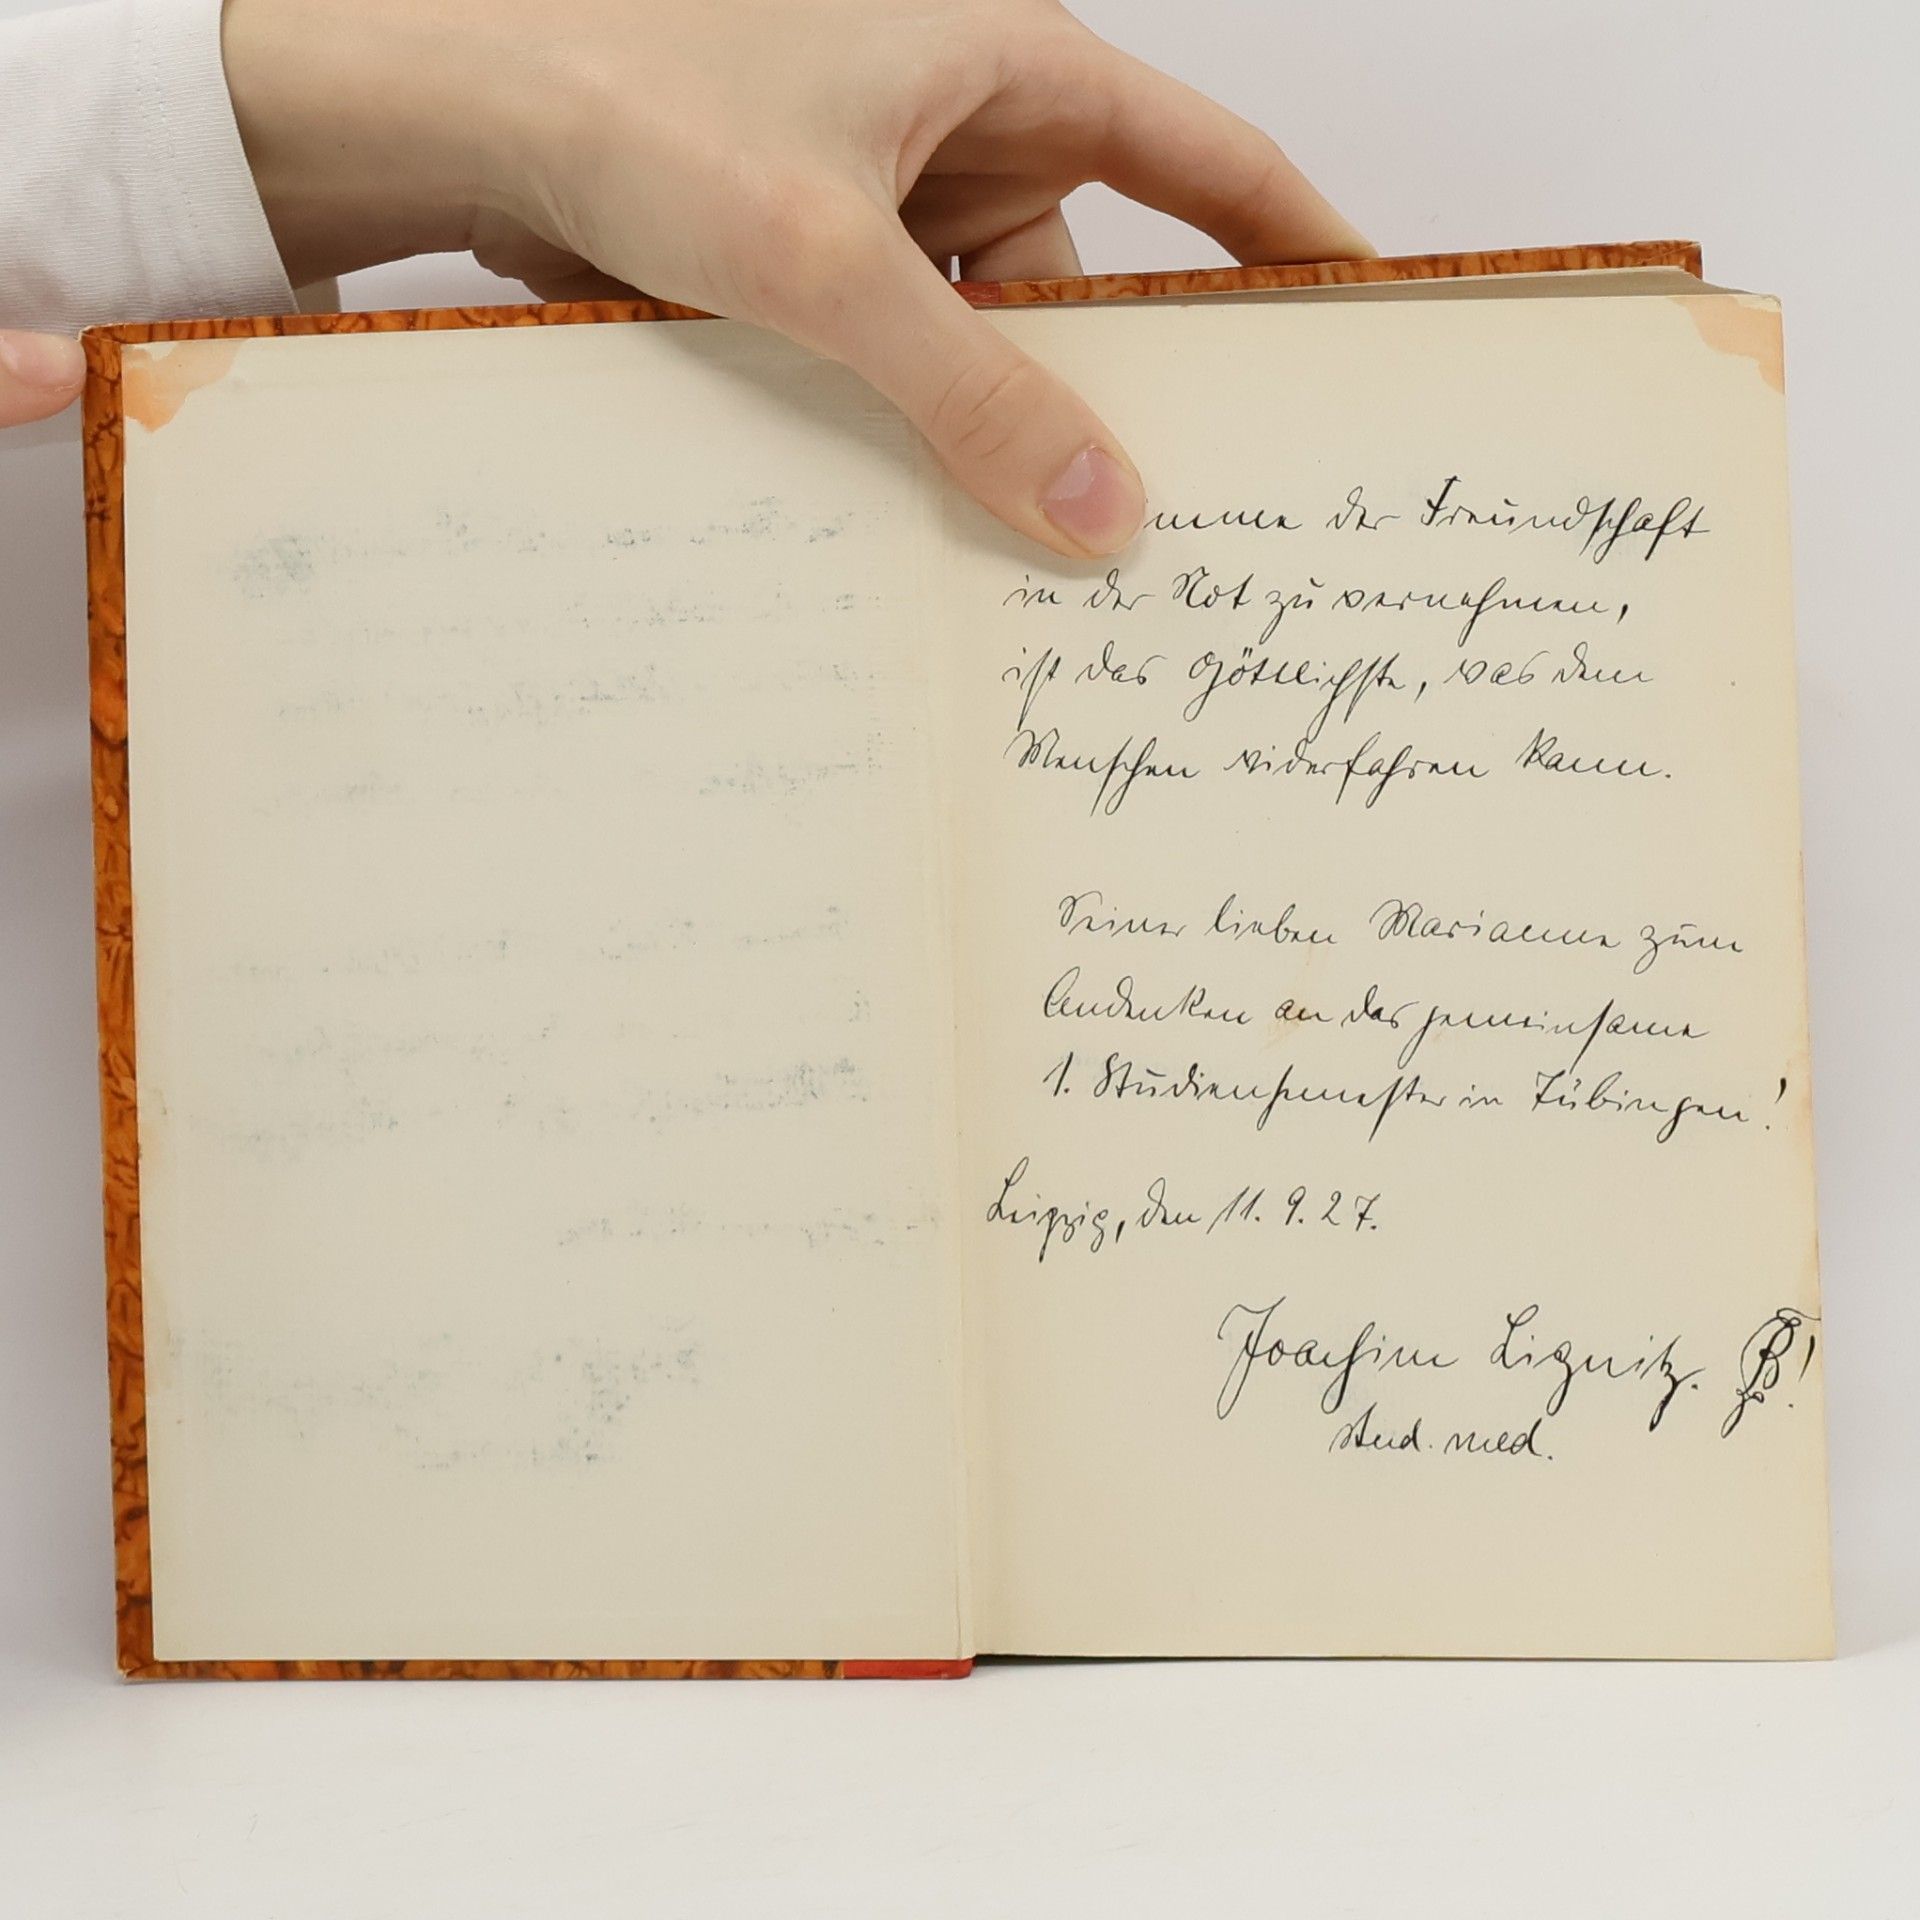 der Freundschaft
in der Not zu vernehmen,
ist das Göttlichste, was dem
Menschen widerfahren kann.
Seiner lieben Marianne zum
Andenken an das gemeinsame
1. Studiensemester in Tübingen!
Leipzig, den 11. 9. 27.
Joachim Lignitz.
stud. med.